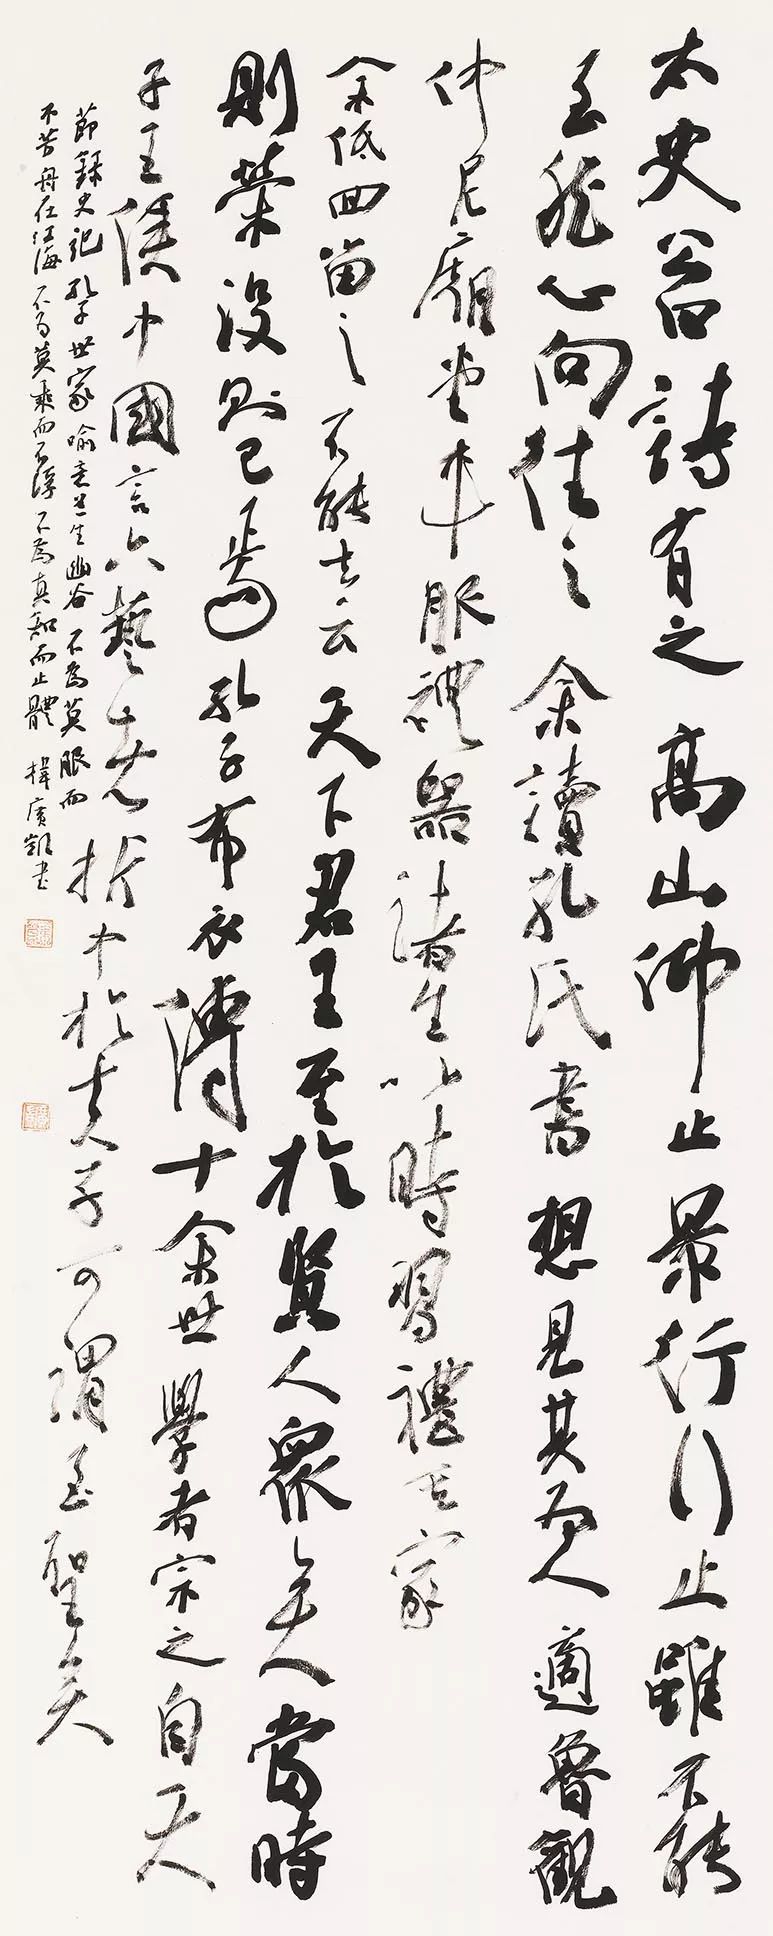 太史公曰詩有之高山仰止景行行止雖不能
至然心向往之余讀孔氏書想見其為人適魯觀
仲尼廟堂車服禮器諸生以時習禮其家
余低回留之不能去云天下君王至於賢人眾矣當時
則榮沒則已焉孔子布衣傳十余世學者宗之自天
子王侯中國言六藝者折中於夫子可謂至聖矣
節錄史記孔子世家喻意蘭生幽谷不為莫服而
不芳舟在江海不為莫乘而不浮
廣凱書